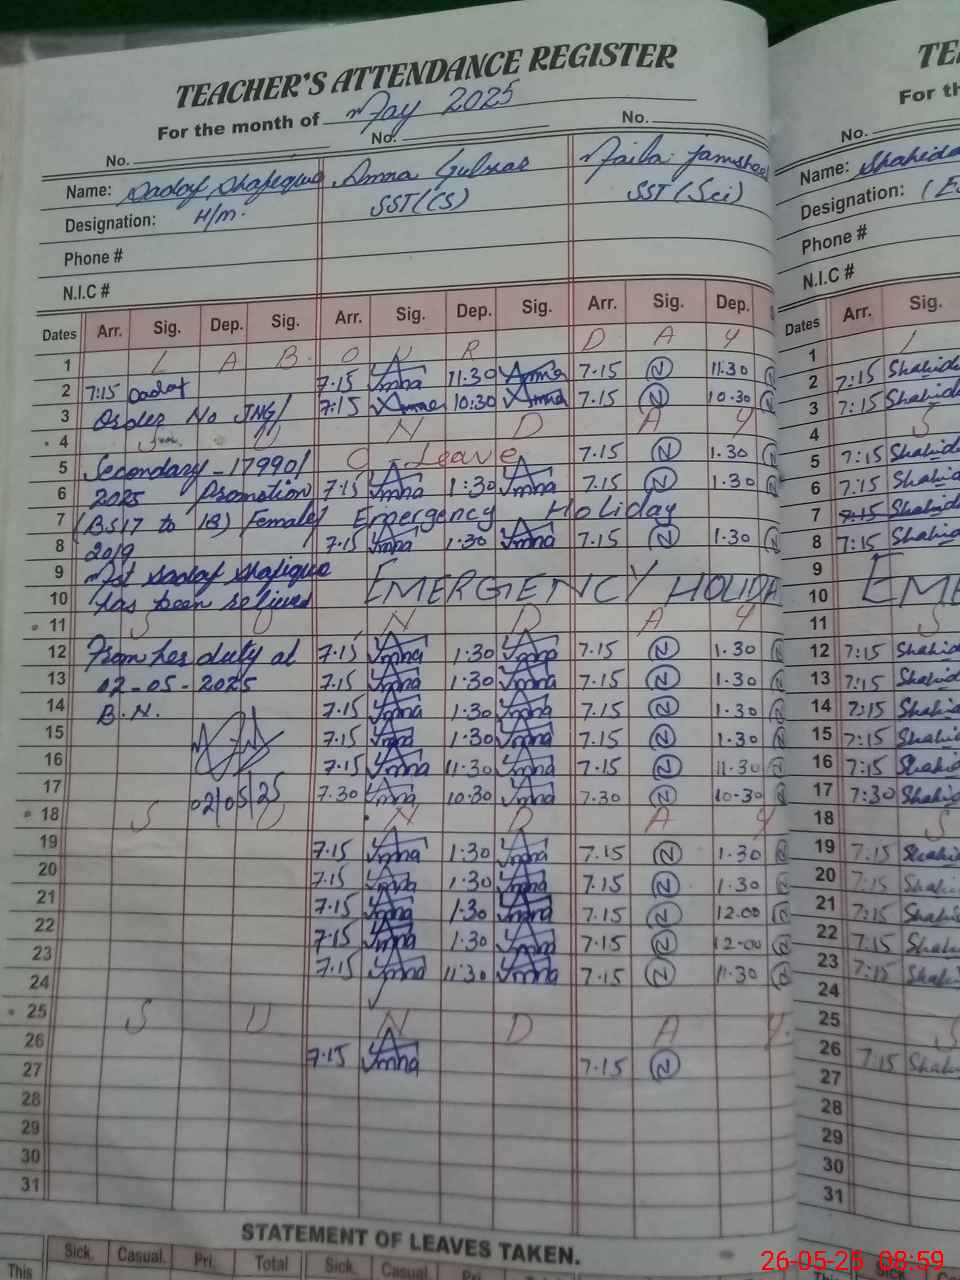 TEACHER'S ATTENDANCE REGISTER
For the month of May 2025
No. No. No.
Name: Sadaf Shafique Amna Gulzar Naila Jamsheed
Designation: H/m. SST(CS) SST(Sci)
Phone #
N.I.C #
Dates Arr. Sig. Dep. Sig. Arr. Sig. Dep. Sig. Arr. Sig. Dep.
1 L A B O U R D A Y
2 7:15 Sadaf 7.15 Amna 11:30 Amna 7.15 N 11.30
3 Order No JNG/ 7:15 Amna 10:30 Amna 7.15 N 10.30
4 S U N D A Y
5 Secondary-17990/ C-Leave 7.15 N 1.30
6 2025 Promotion 7:15 Amna 1:30 Amna 7.15 N 1.30
7 (BS17 to 18) Female/ Emergency Holiday
8 2019 7.15 Amna 1:30 Amna 7.15 N 1.30
9 Mst Sadaf Shafique EMERGENCY HOLIDA
10 has been relieved
11 S U N D A Y
12 From her duty at 7.15 Amna 1:30 Amna 7.15 N 1.30
13 02-05-2025 7.15 Amna 1:30 Amna 7.15 N 1.30
14 B.N. 7.15 Amna 1:30 Amna 7.15 N 1.30
15 7.15 Amna 1:30 Amna 7.15 N 1.30
16 7.15 Amna 11:30 Amna 7.15 N 11.30
17 02/05/25 7.30 Amna 10:30 Amna 7.30 N 10-30
18 S U N D A Y
19 7.15 Amna 1:30 Amna 7.15 N 1.30
20 7.15 Amna 1.30 Amna 7.15 N 1.30
21 7.15 Amna 1.30 Amna 7.15 N 12.00
22 7.15 Amna 1:30 Amna 7.15 N 12-00
23 7.15 Amna 11:30 Amna 7.15 N 11.30
24
25 S U N D A Y.
26 7.15 Amna 7.15 N
27
28
29
30
31
STATEMENT OF LEAVES TAKEN.
Sick. Casual. Pri. Total Sick. Casual
This
For th
No.
Name: Shahida
Designation:
Phone #
N.I.C #
Dates Arr. Sig.
1 L
2 7:15 Shahida
3 7:15 Shahida
4 S
5 7:15 Shahida
6 7:15 Shahida
7 7:15 Shahida
8 7:15 Shahida
9 EME
10
11 S
12 7:15 Shahida
13 7:15 Shahida
14 7:15 Shahida
15 7:15 Shahida
16 7:15 Shahida
17 7:30 Shahida
18 S
19 7:15 Shahi
20 7:15 Shahi
21 7:15 Shahi
22 7:15 Shahi
23 7:15 Shahi
24
25 S
26 7:15 Shahi
27
28
29
30
31
26-05-25 08:59